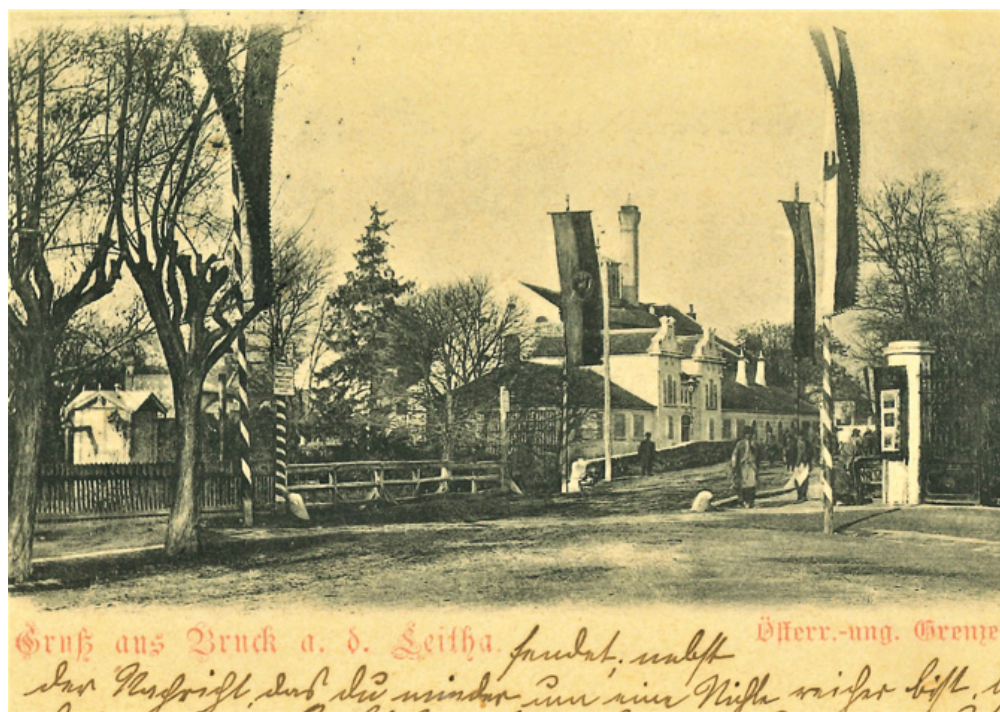 Gruß aus Bruck a. d. Leitha.
Österr.-ung. Grenze
sendet, nebst
der Nachricht, das du wieder um eine Nichte reicher bist,